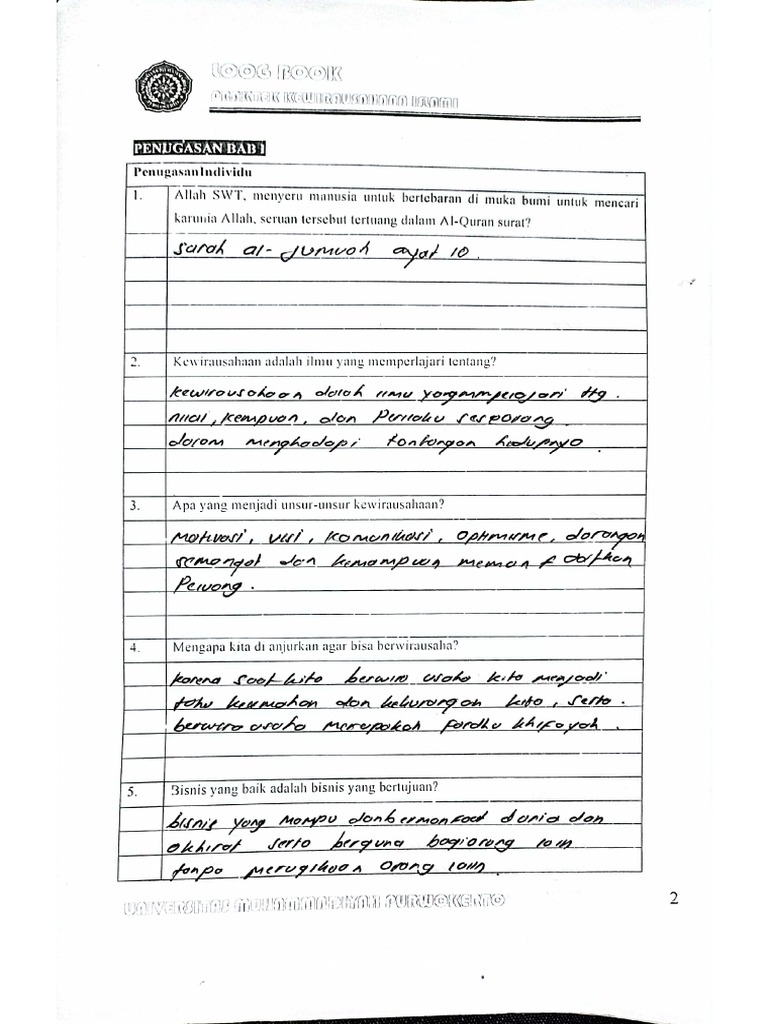 LOOG BOOK
PRAKTEK KEWIRAUSAHAAN ISLAMI
PENUGASAN BAB I
Penugasan Individu
1. Allah SWT, menyeru manusia untuk bertebaran di muka bumi untuk mencari
karunia Allah, seruan tersebut tertuang dalam Al-Quran surat?
Surah al-Jumuah ayat 10.
2. Kewirausahaan adalah ilmu yang memperlajari tentang?
kewirausahaan dalah ilmu yang mmperajari ttg.
nilai, kempuan, dan Perilaku sesporang
dalam menghadapi tantangan hidupnya.
3. Apa yang menjadi unsur-unsur kewirausahaan?
Motivasi, visi, komunikasi, optimisme, dorongan
semangat dan kemampuan memanfaatkan
Peluang.
4. Mengapa kita di anjurkan agar bisa berwirausaha?
karena saat kita berwira usaha kita menjadi
tahu kelemahan dan kekurangan kita, serta.
berwira usaha merupakah fardhu khifayah.
5. Bisnis yang baik adalah bisnis yang bertujuan?
bisnis yang mampu dan bermanfaat dunia dan
akhirat serta berguna bagi orang lain
tanpa merugikaan orang lain.
UNIVERSITAS MUHAMMADIYAH PURWOKERTO
2